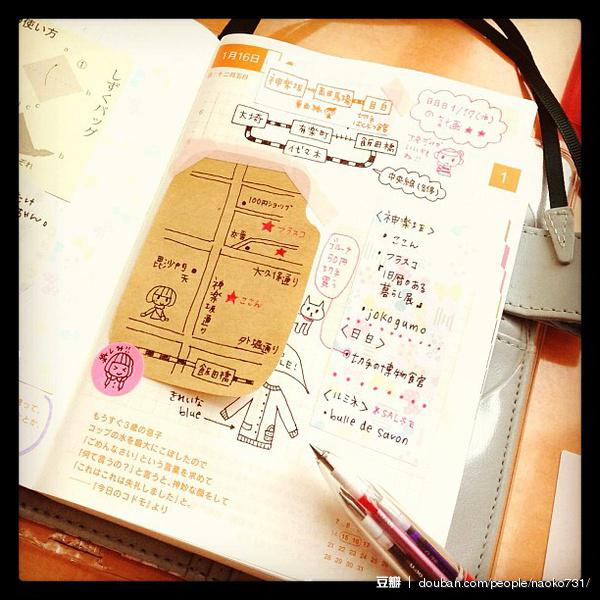 使い方
しずくバッグ
1月16日
神楽坂
高田馬場
目白
大塚
有楽町
飯田橋
代々木
明日1/17(木)
の計画★★
1
100円ショップ
フラスコ
大久保通り
毘沙門
天
神楽坂通り
ここん
外堀通り
飯田橋
〈神楽坂〉
・ここん
・フラスコ
『旧暦のある
暮らし展』
・jokogumo
〈目白〉
切手の博物館
〈ルミネ〉
・bulle de savon
きれいな
blue
もうすぐ3歳の息子
コップの水を盛大にこぼしたので
「ごめんなさい」という言葉を求めて
「何て言うの?」と言うと、神妙な顔をして
「これはこれは失礼しました」と。
——『今日のコドモ』より
豆瓣 | douban.com/people/naoko731/